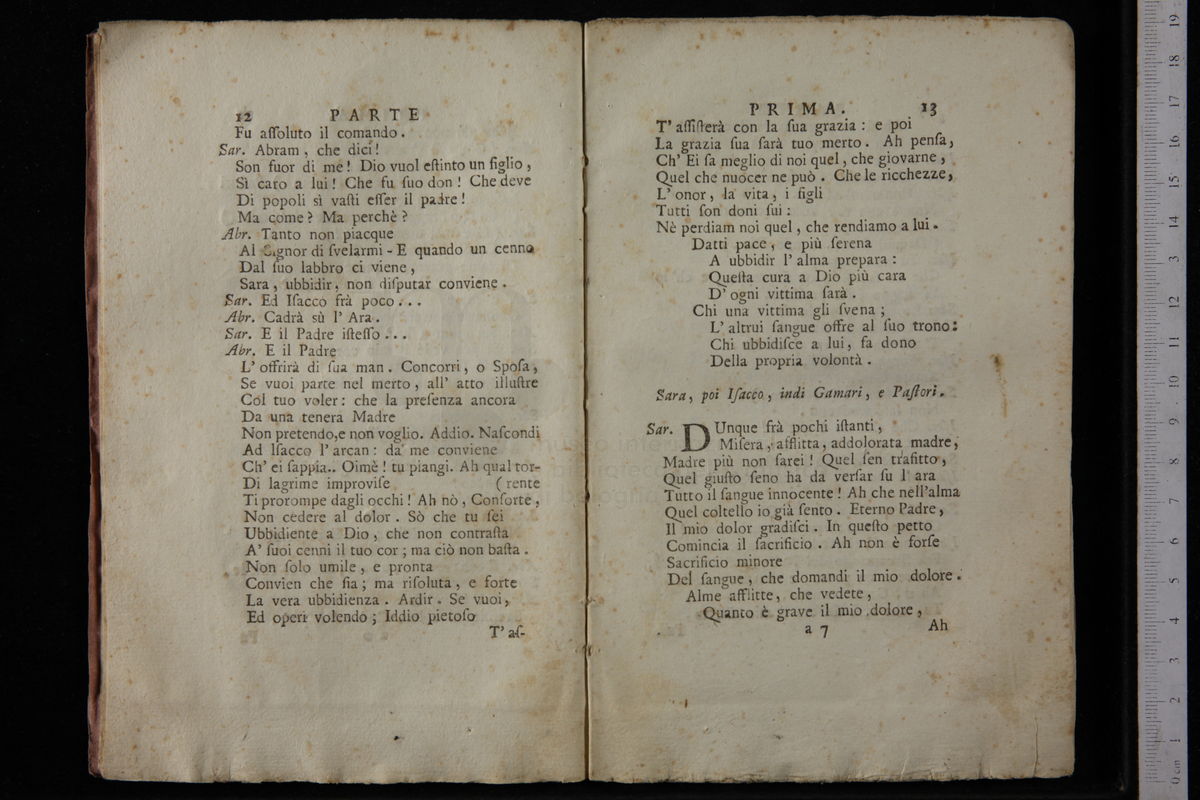 12 PARTE
Fu aſſoluto il comando.
Sar. Abram, che dici!
Son fuor di me! Dio vuol eſtinto un figlio,
Sì caro a lui! Che fu ſuo don! Che deve
Di popoli sì vaſti eſſer il padre!
Ma come? Ma perchè?
Abr. Tanto non piacque
Al Signor di ſvelarmi - E quando un cenno
Dal ſuo labbro ci viene,
Sara, ubbidir, non diſputar conviene.
Sar. Ed Iſacco frà poco...
Abr. Cadrà sù l' Ara.
Sar. E il Padre iſteſſo...
Abr. E il Padre
L' offrirà di ſua man. Concorri, o Spoſa,
Se vuoi parte nel merto, all' atto illuſtre
Col tuo voler: che la preſenza ancora
Da una tenera Madre
Non pretendo,e non voglio. Addio. Naſcondi
Ad Iſacco l' arcan: da me conviene
Ch' ei ſappia.. Oimè! tu piangi. Ah qual tor-
Di lagrime improviſe (rente
Ti prorompe dagli occhi! Ah nò, Conſorte,
Non cedere al dolor. Sò che tu ſei
Ubbidiente a Dio, che non contraſta
A' ſuoi cenni il tuo cor; ma ciò non baſta.
Non ſolo umile, e pronta
Convien che ſia; ma riſoluta, e forte
La vera ubbidienza. Ardir. Se vuoi,
Ed operi volendo; Iddio pietoſo
T' aſ-
PRIMA. 13
T' aſſiſterà con la ſua grazia: e poi
La grazia ſua ſarà tuo merto. Ah penſa,
Ch' Ei ſa meglio di noi quel, che giovarne,
Quel che nuocer ne può. Che le ricchezze,
L' onor, la vita, i figli
Tutti ſon doni ſui:
Nè perdiam noi quel, che rendiamo a lui.
Datti pace, e più ſerena
A ubbidir l' alma prepara:
Queſta cura a Dio più cara
D' ogni vittima ſarà.
Chi una vittima gli ſvena;
L' altrui ſangue offre al ſuo trono:
Chi ubbidiſce a lui, fa dono
Della propria volontà.
Sara, poi Iſacco, indi Gamari, e Paſtori.
Sar. DUnque frà pochi iſtanti,
Miſera, afflitta, addolorata madre,
Madre più non ſarei! Quel ſen trafitto,
Quel giuſto ſeno ha da verſar ſu l' ara
Tutto il ſangue innocente! Ah che nell'alma
Quel coltello io già ſento. Eterno Padre,
Il mio dolor gradiſci. In queſto petto
Comincia il ſacrificio. Ah non è forſe
Sacrificio minore
Del ſangue, che domandi il mio dolore.
Alme afflitte, che vedete,
Quanto è grave il mio dolore,
a 7 Ah